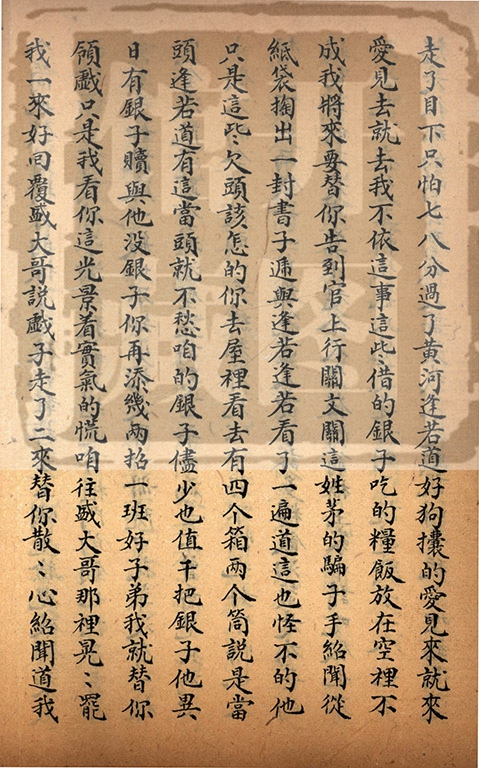 走了目下只怕七八分過了黄河逢若道好狗攮的愛見來就來
愛見去就去我不依這事這些〻借的銀子吃的糧飯放在空裡不
成我將來要替你告到官上行關文關這姓茅的騙子手紹聞從
紙袋掏出一封書子遞與逢若逢若看了一遍道這也怪不的他
只是這些〻欠頭該怎的你去屋裡看去有四个箱两个筒説是當
頭逢若道有這當頭就不愁咱的銀子儘少也值千把銀子他異
日有銀子贖與他没銀子你再添幾两招一班好子弟我就替你
領戯只是我看你這光景着實氣的慌咱往盛大哥那裡晃〻罷
我一來好回覆盛大哥説戯子走了二來替你散〻心紹聞道我